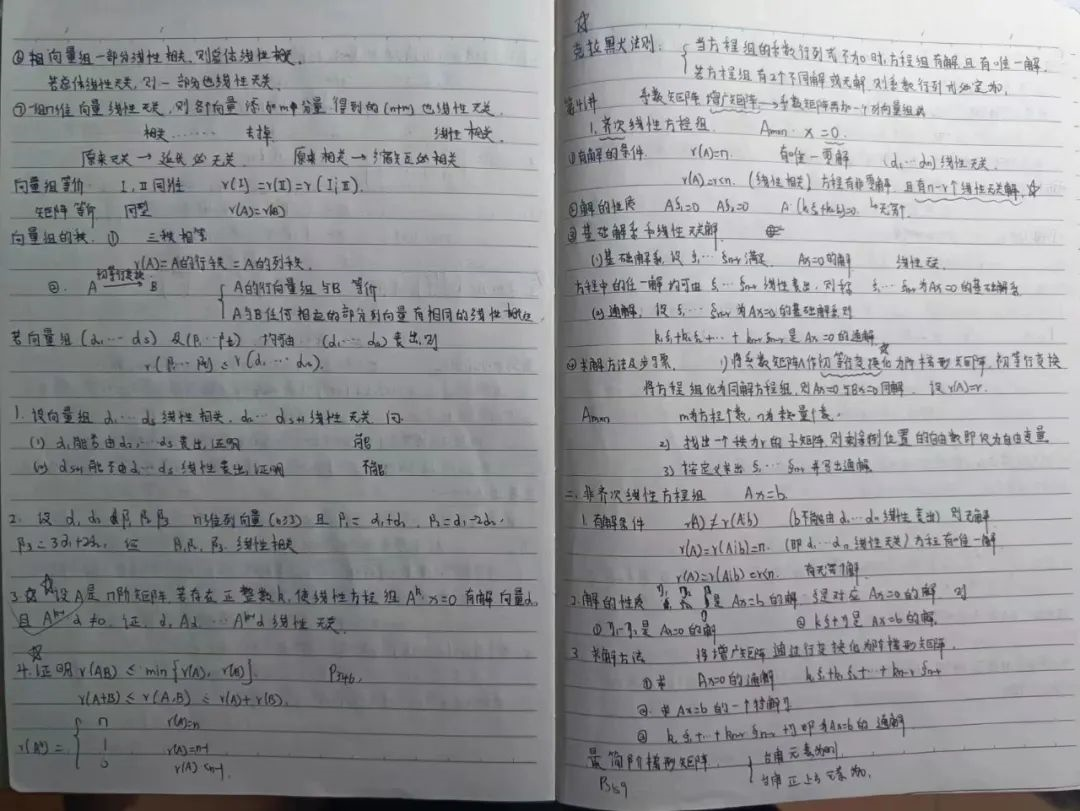 ②相向量组一部分线性相关,则总体线性相关
若总体线性无关,则一部分也线性无关
③一组n维向量线性无关,则各个向量添加m个分量得到的(n+m)也线性无关
相关……去掉 线性相关
原来无关→延长必无关 原来相关→缩短必相关
向量组等价 Ⅰ,Ⅱ同维 r(Ⅰ)=r(Ⅱ)=r(Ⅰ¦Ⅱ).
矩阵等价 同型 r(A)=r(B)
向量组的秩 ① 三秩相等
r(A)=A的行秩=A的列秩
②. A 初等行变换→ B { A的行向量组与B等价
A与B任何相应的部分列向量有相同的线性相关性
若向量组(α₁…αs)及(β₁…βt) 均可由(α₁…αs)表出,则
r(β₁…βt)≤r(α₁…αs).
1. 设向量组α₁…αs线性相关,α₂…αs+1线性无关 问
(1) α₁能否由α₂,…αs表出,证明 能
(2) αs+1能否由α₁…αs线性表出,证明 不能
2. 设α₁,α₂ β₁ β₂ β₃ n维列向量(n≥3)且β₁=α₁+α₂, β₂=α₁-2α₂,
β₃=3α₁+2α₂, 证 β₁β₂ β₃线性相关
3. 设A是n阶矩阵,若存在正整数k,使线性方程组Aᵏx=0有解向量α,
且Aᵏ⁻¹α≠0,证,α,Aα…Aᵏ⁻¹α线性无关.
4.证明r(AB)≤min{r(A),r(B)}. P346,
r(A+B)≤r(A,B)≤r(A)+r(B).
r(A*)= { n r(A)=n
1 r(A)=n-1
0 r(A)<n-1.
克拉黑大法则: { 当方程组的系数行列式不为0时,方程组有解且有唯一解.
若方程组有2个不同解或无解 则系数行列式必定为0.
第4讲 系数矩阵 增广矩阵→系数矩阵再加一个列向量组成
1.齐次线性方程组 Am×n·x=0.
①有解的条件 r(A)=n. 有唯一零解 (α₁…αn)线性无关
r(A)=r<n.(线性相关)方程有非零解,且有n-r个线性无关解,
②解的性质 Aξ₁=0 Aξ₂=0 A·(k₁ξ₁+k₂ξ₂)=0. 无穷个
③基础解系和线性无关解
(1)基础解系,设ξ₁…ξn-r满足 Ax=0的解 线性无关
方程中的任一解均可由ξ₁…ξn-r线性表出,则称ξ₁…ξn-r为Ax=0的基础解系
(2)通解 设ξ₁…ξn-r为Ax=0的基础解系则
k₁ξ₁+k₂ξ₂+…+kn-rξn-r是Ax=0的通解
④求解方法及步骤. 1)将系数矩阵A作初等行变换化为阶梯形矩阵,初等行变换
将方程组化为同解方程组,则Ax=0与Bx=0同解 设r(A)=r.
Am×n m为方程个数,n为未知量个数.
2) 找出一个秩为r的子矩阵,则剩余列位置的自由数即设为自由变量
3) 按定义求出ξ₁…ξn-r并写出通解
二.非齐次线性方程组 Ax=b.
1.有解条件 r(A)≠r(A¦b) (b不能由α₁…αn线性表出)则无解
r(A)=r(A¦b)=n. (即α₁…αn线性无关)方程有唯一解
r(A)=r(A¦b)=r<n. 有无穷解
2.解的性质 η₁ η₂ η是Ax=b的解 ξ是对应Ax=0的解 则
①η₁-η₂是Ax=0的解 ②kξ+η是Ax=b的解.
3. 求解方法 将增广矩阵通过行变换化为阶梯形矩阵.
①求 Ax=0的通解 k₁ξ₁+k₂ξ₂+…+kn-rξn-r
②.求Ax=b的一个特解η
③ k₁ξ₁+…+kn-rξn-r+η即为Ax=b的通解
最简阶梯形矩阵 { 台角元素为1
台角正上方元素为0.
P369